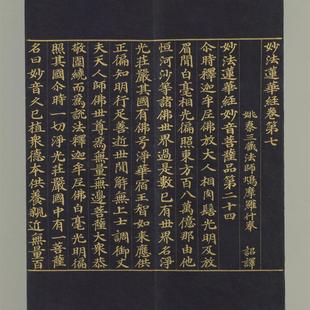 妙法蓮華經卷第七
姚秦三藏法師鳩摩羅什奉 詔譯
妙法蓮華經妙音菩薩品第二十四
尒時釋迦牟尼佛放大人相肉髻光明及放
眉閒白毫相光徧照東方百八萬億那由他
恒河沙等諸佛世界過是數已有世界名淨
光莊嚴其國有佛号淨華宿王智如來應供
正徧知明行足善逝世閒解無上士調御丈
夫天人師佛世尊為無量無邊菩薩大衆恭
敬圍繞而為說法釋迦牟尼佛白毫光明徧
照其國尒時一切淨光莊嚴國中有一菩薩
名曰妙音久已植衆德本供養親近無量百